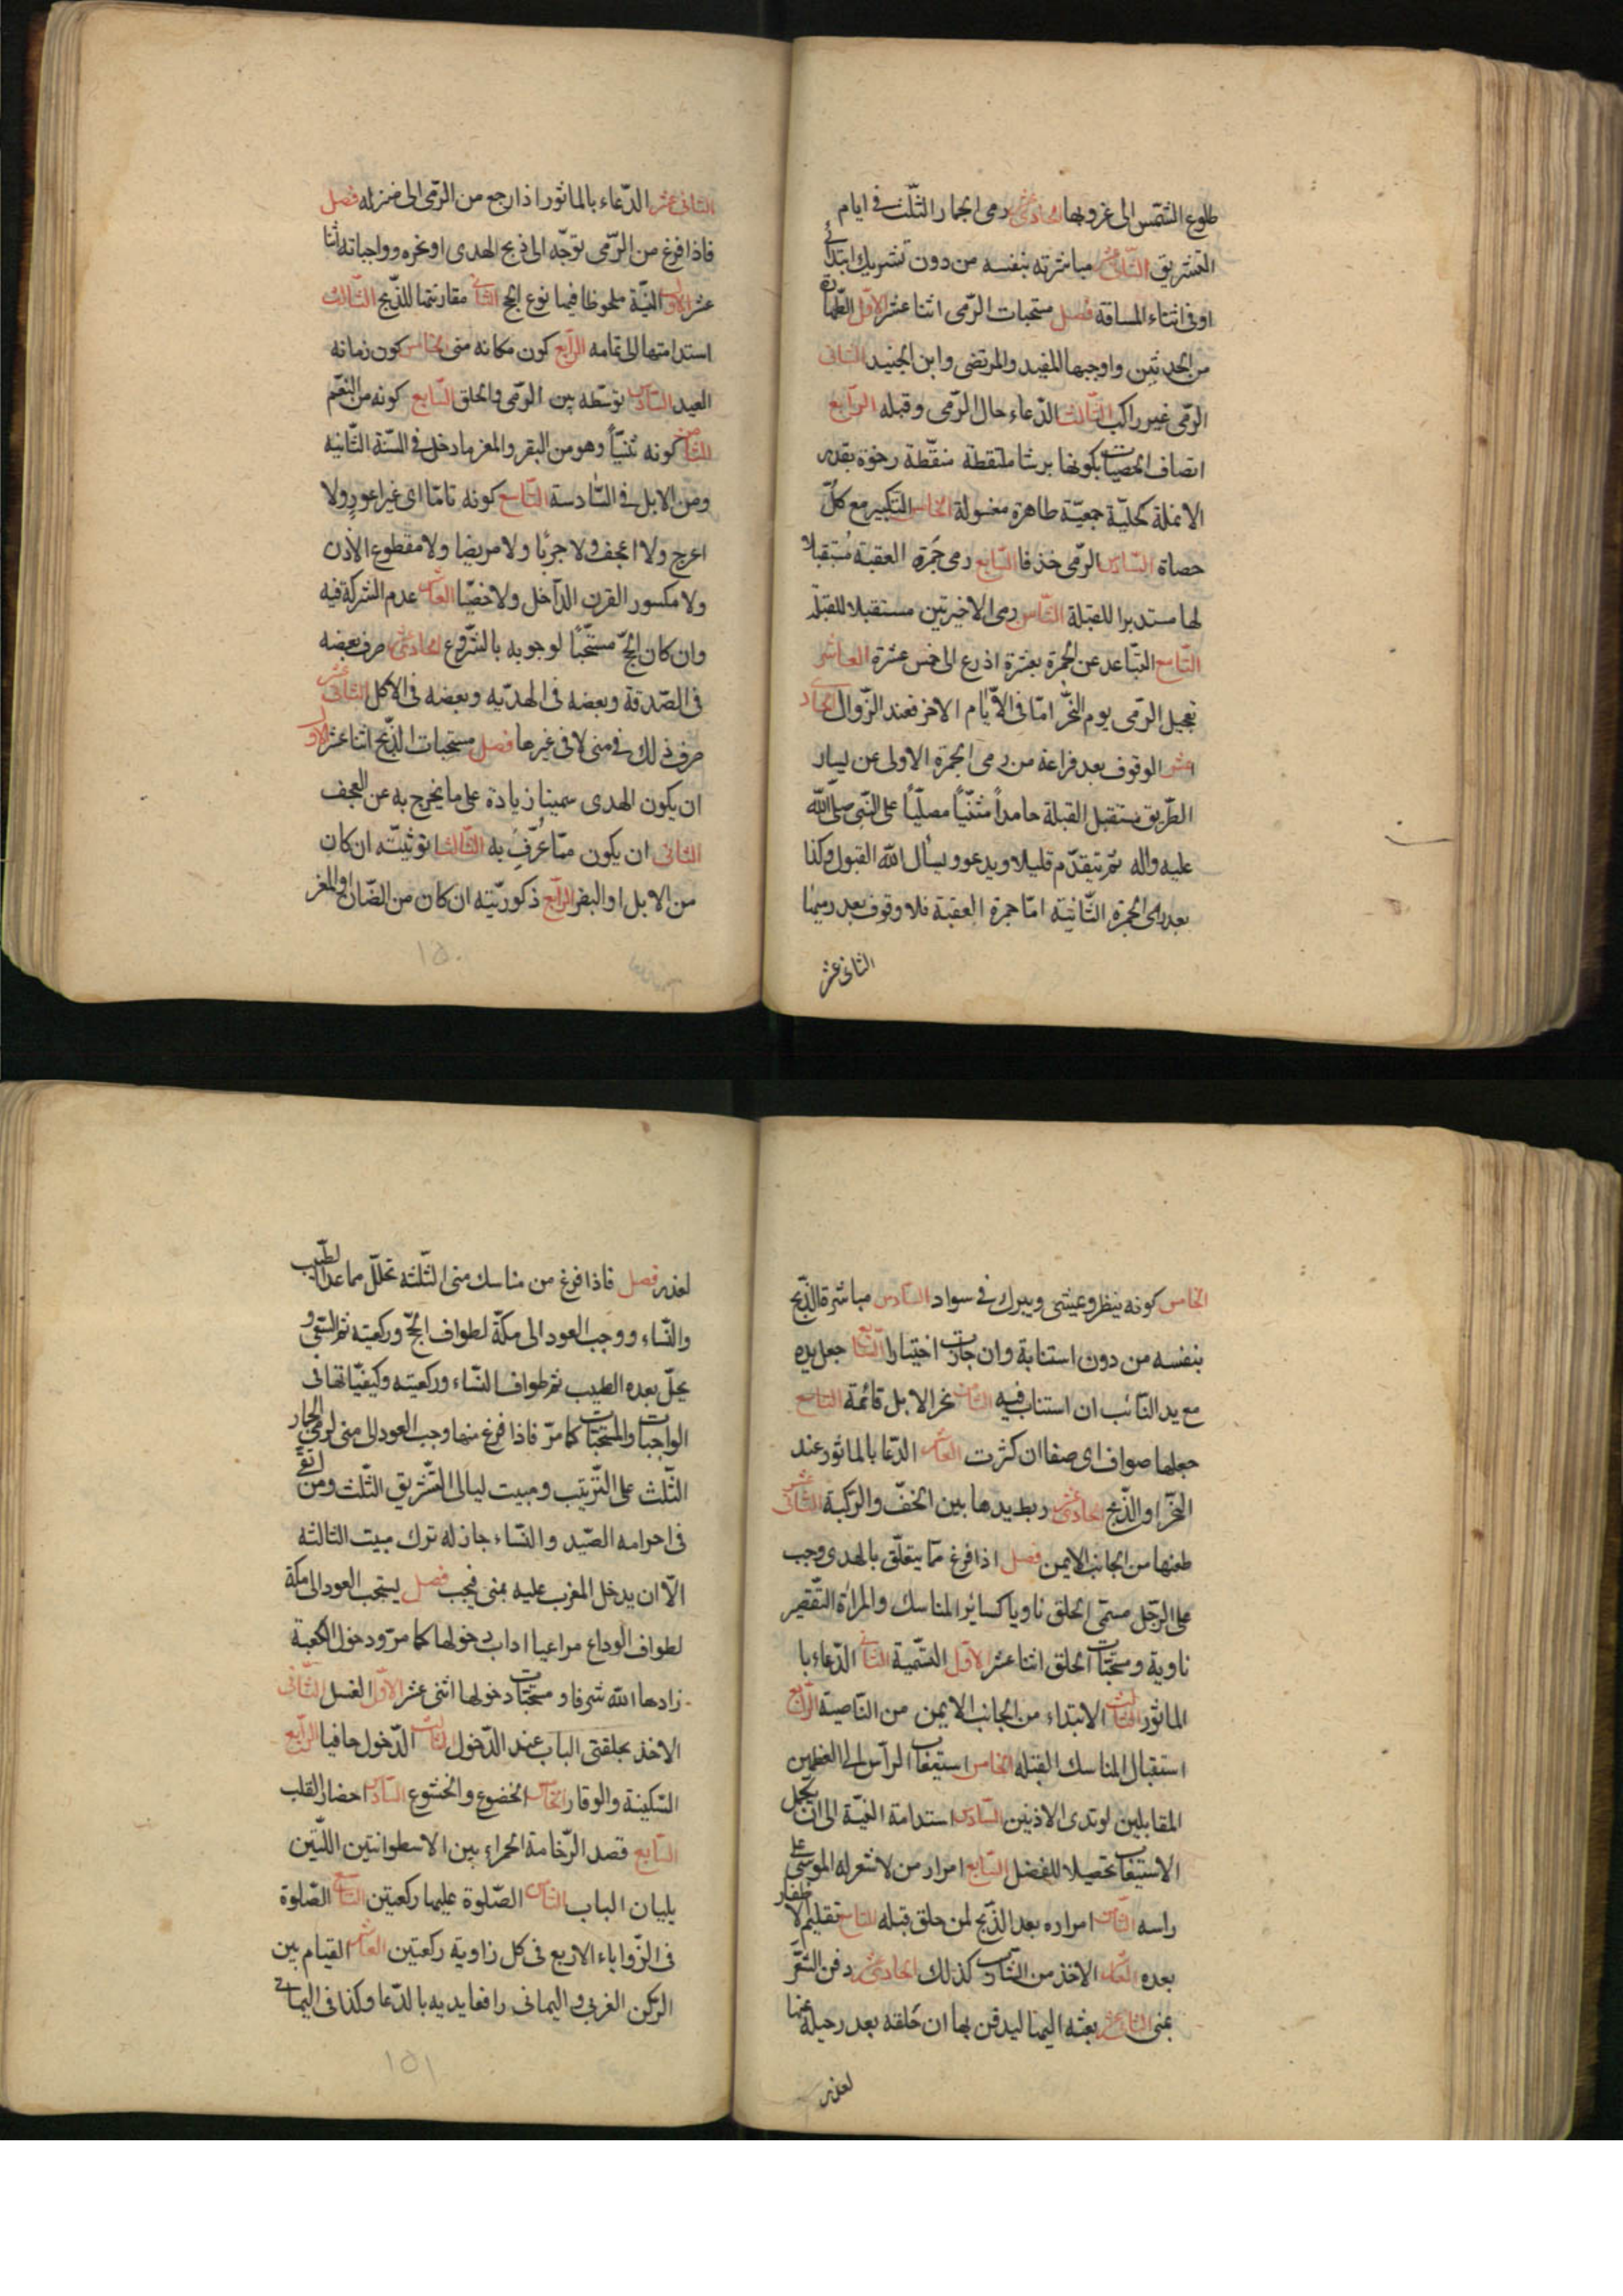 طلوع الشّمس الى غروبها الحادى عشر رمى الجمار الثّلث فى ايام
التشريق الثّانى عشر مباشرته بنفسه من دون تشريك ابتداء
او فى اثناء المسافة فصل مستحبات الرّمى اثنا عشر الاوّل الطّهارة
من الحدثين واوجبها المفيد والمرتضى وابن الجنيد الثانى
الرّمى غير راكب الثّالث الدّعاء حال الرّمى وقبله الرّابع
اتصاف الحصيات بكونها برشا ملتقطة منقّطة رخوة بقدر
الانملة كحليّة جمعيّة طاهرة مغسولة الخامس التكبير مع كلّ
حصاة السّادس الرّمى خذفا السّابع رمى جمرة العقبة مُستقبلا
لها مستدبرا للقبلة الثّامن رمى الاخيرتين مستقبلا للقبلة
التّاسع التباعد عن الجمرة بعشرة اذرع الى خمس عشرة العاشر
تعجيل الرّمى يوم النّحر امّا فى الايّام الاخر فعند الزّوال الحادى
عشر الوقوف بعد فراغه من رمى الجمرة الاولى عن يسار
الطّريق مستقبل القبلة حامداً مثنّياً مصلّياً على النّبى صلّى الله
عليه واله ثمّ يتقدّم قليلا ويدعو ويسأل الله القبول وكذا
بعد رمى الجمرة الثّانية امّا جمرة العقبة فلا وقوف بعد رميها
الثانى عشر
الثانى عشر الدّعاء بالماثور اذا رجع من الرّمى الى منزله فصل
فاذا فرغ من الرّمى توجّه الى ذبح الهدى او نحره وواجباته اثنا
عشر الاوّل النيّة ملحوظا فيها نوع الحج الثانى مقارنتها للذّبح الثّالث
استدامتها الى تمامه الرّابع كون مكانه منى الخامس كون زمانه
العيد السّادس توسّطه بين الرّمى والحلق السّابع كونه من النّعم
الثّامن كونه ثنيّاً وهو من البقر والمعز ما دخل فى السّنة الثّانيه
ومن الابل فى السّادسة التّاسع كونه تامّا اى غير اعور ولا
اعرج ولا اعجف ولا جربًا ولا مريضا ولا مقطوع الاذن
ولا مكسور القرن الدّاخل ولا خصيّا العاشر عدم الشركة فيه
وان كان الحجّ مستحّبًا لوجوبه بالشّروع الحادى عشر صرف بعضه
فى الصّدقة وبعضه فى الهديّه وبعضه فى الاكل الثانى عشر
صرف ذلك فى منى لا فى غيرها فصل مستحبات الذّبح اثنا عشر الاوّل
ان يكون الهدى سمينا زيادة على ما يخرج به عن العجف
الثانى ان يكون ممّا عُرّفِ به الثّالث انوثيّته ان كان
من الابل او البقر الرّابع ذكوريّته ان كان من الضّان او المعز
١٥٠
الخامس كونه ينظر ويمشى ويبرك فى سواد السّادس مباشرة الذّبح
بنفسه من دون استنابة وان جازت اختيارا السّابع جعل يده
مع يد النّائب ان استناب فيه الثّامن نحر الابل قائمة التاسع
جعلها صواف اى صفا ان كثرت العاشر الدّعا بالماثور عند
النّحر او الذّبح الحادى عشر ربط يديها بين الخفّ والرّكبة الثّانى عشر
طعنها من الجانب الايمن فصل اذا فرغ ممّا يتعلّق بالهدى وجب
على الرّجل مسمّى الحلق ناويا كسائر المناسك والمراة التّقصير
ناوية ومستحبّات الحلق اثنا عشر الاوّل التّسمية الثانى الدّعاء با
الماثور الثّالث الابتداء من الجانب الايمن من النّاصية الرّابع
استقبال المناسك القبله الخامس استيعاب الرّاس الى العظمين
المقابلين لوتدى الاذنين السّادس استدامة النيّة الى ان يكمل
الاستيعاب تحصيلا للفضل السّابع امرار من لا شعر له الموسى على
راسه الثّامن امراره بعد الذّبح لمن حلق قبله التّاسع تقليم الاظفار
بعده العاشر الاخذ من الشّارب كذلك الحادى عشر دفن الشّعر
بمنى الثانى عشر بعثه اليها ليدفن بها ان حَلقه بعد رحيله عنها
لعذر
لعذر فصل فاذا فرغ من مناسك منى الثّلثه تحلّل مما عدا الطّيب
والنّساء ووجب العود الى مكّة لطواف الحجّ وركعتيه ثم السّعى و
يحلّ بعده الطيب ثم طواف النّساء وركعتيه وكيفيّاتها فى
الواجبات والمستحبّات كما مرّ فاذا فرغ منها وجب العود الى منى لرمى الجمار
الثّلث على التّرتيب ومبيت ليالى التّشريق الثّلث ومن اتقى
فى احرامه الصّيد والنّساء جاز له ترك مبيت الثالثه
الّا ان يدخل المغرب عليه بمنى فيجب فصل يستحب العود الى مكة
لطواف الوداع مراعيا اداب دخولها كما مرّ ودخول الكعبة
زادها الله شرفا ومستحبّات دخولها اثنى عشر الاوّل الغسل الثّانى
الاخذ بحلقتى الباب عند الدّخول الثّالث الدّخول حافيا الرّابع
السّكينة والوقار الخامس الخضوع والخشوع السّادس احضار القلب
السّابع قصد الرّخامة الحمراء بين الاسطوانتين اللّتين
يليان الباب الثّامن الصّلوة عليها ركعتين التّاسع الصّلوة
فى الزّواياء الاربع فى كل زاوية ركعتين العاشر القيام بين
الرّكن الغربى واليمانى رافعا يديه بالدّعا وكذا فى اليمانى
١٥١